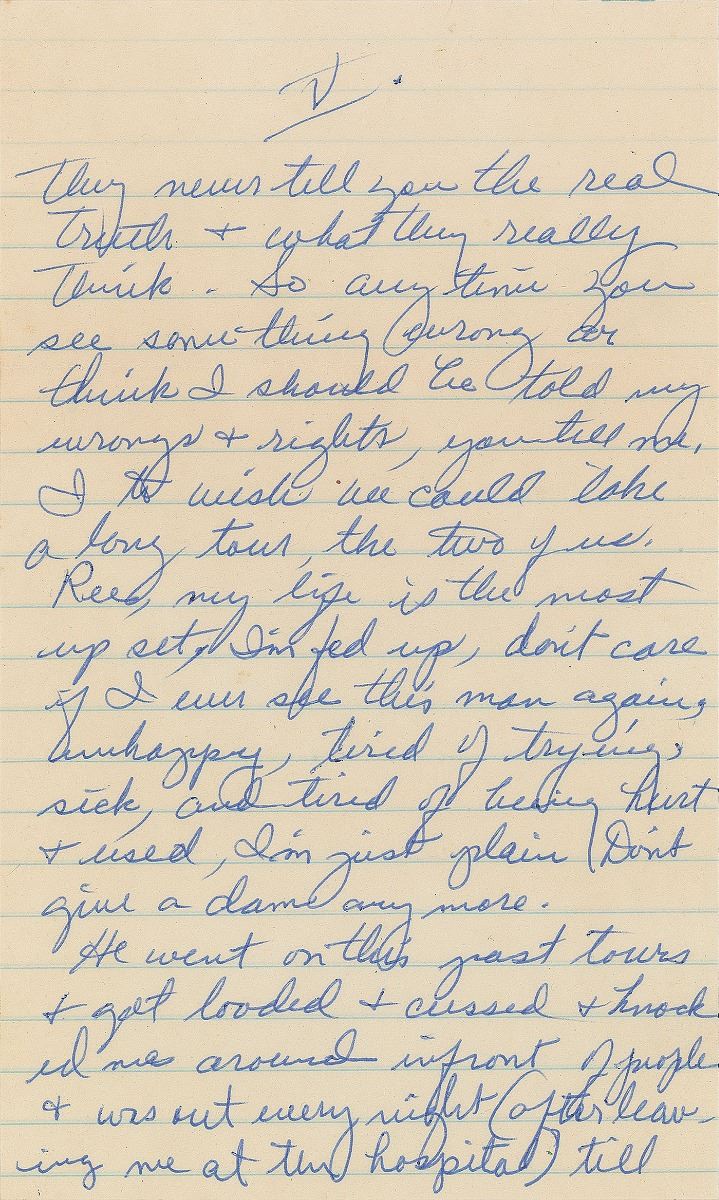 V.
They never tell you the real
truth & what they really
think. So any time you
see something wrong or
think I should be told my
wrongs & rights, you tell me.
I wish we could take
a long tour, the two of us.
my life is the most
up set, I'm fed up, don't care
if I ever see this man again,
unhappy, tired of trying,
sick, and tired of being hurt
& used, I'm just plain Don't
give a damn any more.
He went on this past tours
& got loaded & cussed & knock
ed me around infront of people
& was out every night (after leav-
ing me at the hospital) till